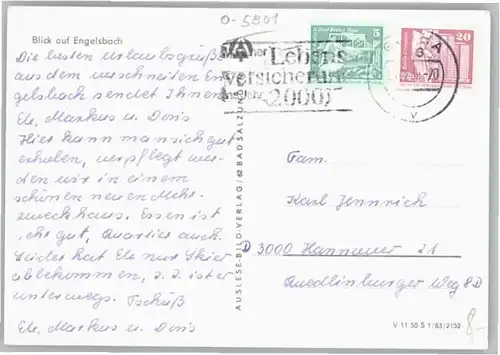 0-5801
Blick auf Engelsbach
Die besten Urlaubsgrüße
aus dem verschneiten En-
gelsbach sendet Ihnen
Ele, Markus u. Doris
Hier kann man sich gut
erholen, verpflegt wer-
den wir in einem
schönen neuen Mehr-
zweckhaus. Essen ist
sehr gut, Quartier auch.
Leider hat Ele nur Skier
abbekommen, z. Z. ist er
unterwegs. Tschüß
Ele, Markus u. Doris
AUSLESE-BILD-VERLAG/62 BAD SALZUNGEN
Lebens
versicherung
2000
5
20
Fam.
Karl Jennrich
D 3000 Hannover 21
Quedlinburger Weg 8D
V 11 50 S 1/83/2152
8,-